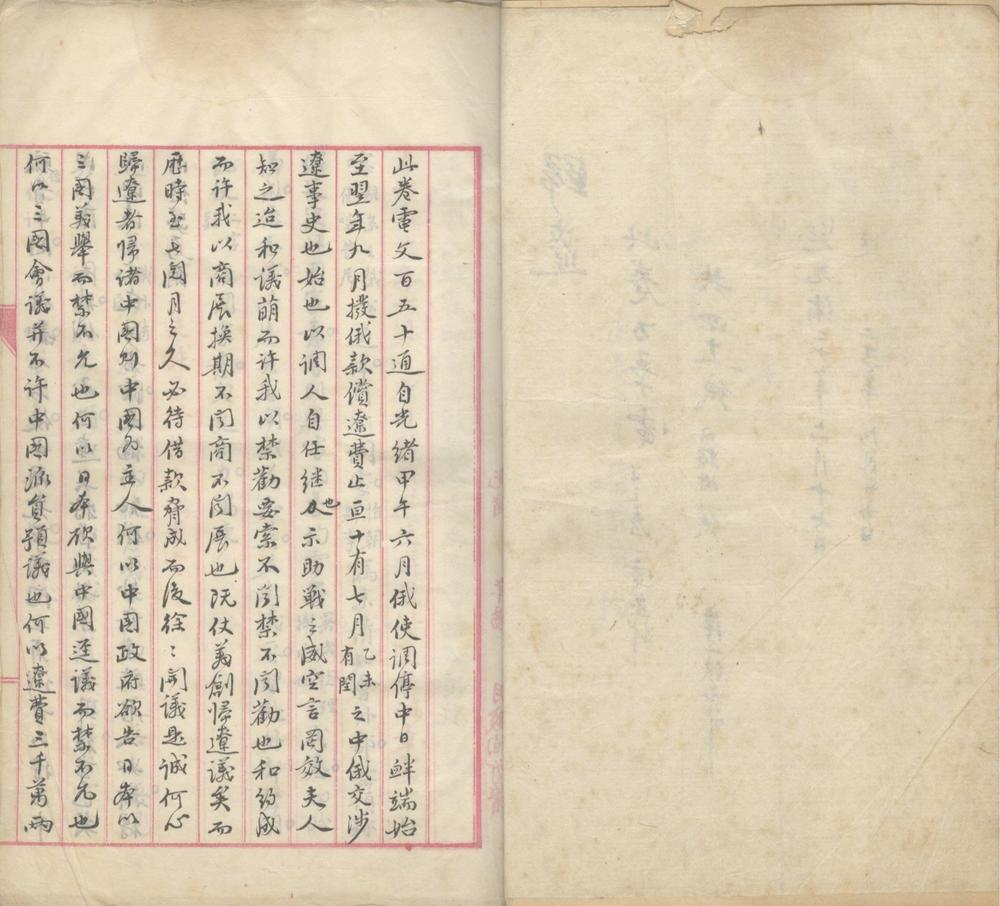 此卷電文百五十通自光緒甲午六月俄使調停中日衅端始
至翌年九月撥俄款償遼費止亘十有七月乙未有閏之中俄交涉
遼事史也始也以調人自任継也示助戰之威空言罔效夫人
知之迨和議萌而許我以禁勸要索不聞禁不聞勸也和約成
而許我以商展換期不聞商不聞展也既仗義創帰遼議矣而
歷時至七閱月之久必待借款脅成而後徐〻開議是誠何心
歸遼者帰諸中國則中國為主人何以中國政府欲告日本以
三國義舉而禁不允也何以日本欲與中國逕議而禁不允也
何以三國會議并不許中國派員預議也何以遼費三千萬兩